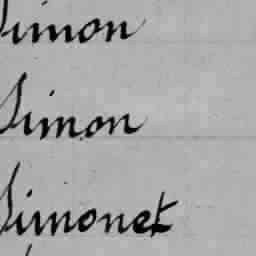 Simon
Simon
Simonet